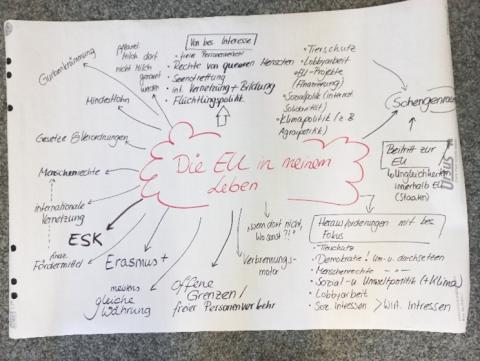 Die EU in meinem
Leben
Gurkenkrümmung
Milch darf
nicht Milch
genannt
werden
Mindestlohn
Gesetze & Verordnungen
Menschenrechte
internationale
Vernetzung
ESK
finanz.
Fördermittel
Erasmus+
meistens
gleiche
Währung
Offene
Grenzen/
freier Personenverkehr
Verbrennungs-
motor
Wenn dort nicht,
wo sonst?!
Von bes. Interesse
• freier Personenverkehr
• Rechte von queeren Menschen
• Seenotrettung
• int. Vernetzung + Bildung
• Flüchtlingspolitik
• Tierschutz
• Lobbyarbeit
• EU-Projekte
(Finanzierung)
• Sozialpolitik (internat.
Solidarität)
• Klimapolitik (z.B
Agrarpolitik)
Beitritt zur
EU
Ungleichheiten
innerhalb EU
(Staaten)
Herausforderungen mit bes.
Fokus
• Tierschutz
• Demokratie! Um- u. durchsetzen
• Menschenrechte
• Sozial- u. Umweltpolitik (+Klima)
• Lobbyarbeit
• Soz. Intressen > Wirt. Intressen